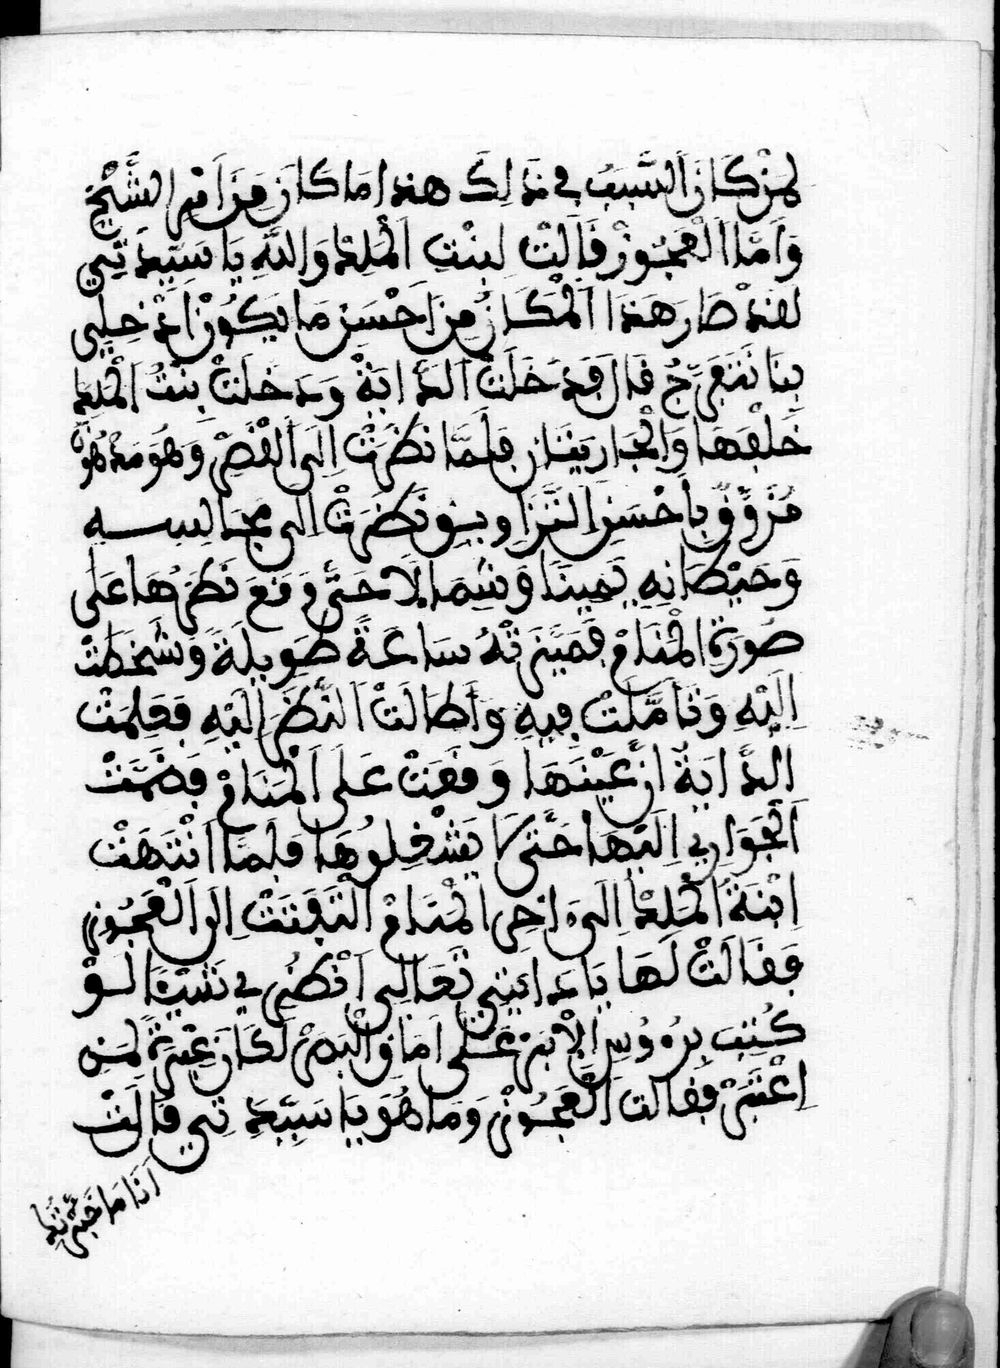 لمن كَانَ السَّبَبُ في ذَلِكَ هذا ما كَانَ مِنَ امْرِ الشَّيْخِ
وَامَّا الْعَجُوزْ قَالَتْ لِبِنْتِ الْمَلِكْ وَاللَّهِ يَا سَيِّدَتِي
لقدْ صَارَ هَذَا الْمَكَانُ مِنَ احْسَنِ مَا يَكُونْ ادْخُلِي
بِنَا نَتَفَرَّجُ قَالَ فَدَخَلَتْ الدَّايَةْ وَدَخَلَتْ بِنْتُ الْمَلِكِ
خَلْفَهَا وَالْجَارِيَتَانِ فَلَمَّا نَظَرَتْ الَى الْقَصْرِ وَهُوَ مَدْهُونْ
مُزَوَّقٌ بِأَحْسَنِ التَّزَاوِيقِ ونَظَرَتْ الى مَجَالِسِهِ
وَحِيطَانِهِ يَمِينًا وَشِمَالًا حَتَّى وَقَعَ نَظَرُهَا عَلَى
صُورَةِ الْمَنَامْ فَمَيَّزَتْهُ سَاعَةً طَوِيلَةً وَشَخَطَتْ
الَيْهِ وَتَأَمَّلَتْ فِيهِ وَأَطَالَتْ النَّظَرَ الَيْهِ فَعَلِمَتْ
الدَّايَةْ انَّ عَيْنَهَا وَقَعَتْ عَلَى الْمَنَامْ فَضَمَّتْ
الْجَوَارِي الَيْهَا حَتَّى لا يَشْغِلُوهَا فَلَمَّا انْتَهَتْ
ابْنَةُ الْمَلِكْ الَى اخِرِ الْمَنَامْ الْتَفَتَتْ الى الْعَجُوزِ
فَقَالَتْ لَهَا يَا دَايَتِي تَعَالِي انْظُرِي فِي شَيْءٍ لَوْ
كُتِبَ بِرُءُوسِ الْابَرْ عَلَى امَاقِ الْبَصَرْ لَكَانَ عِبْرَةً لِمَنِ
اعْتَبَرْ فَقَالَتْ الْعَجُوزْ وَمَا هُوَ يَا سَيِّدَتِي قَالَتْ
انَا مَا خَبَّرْتُكِ